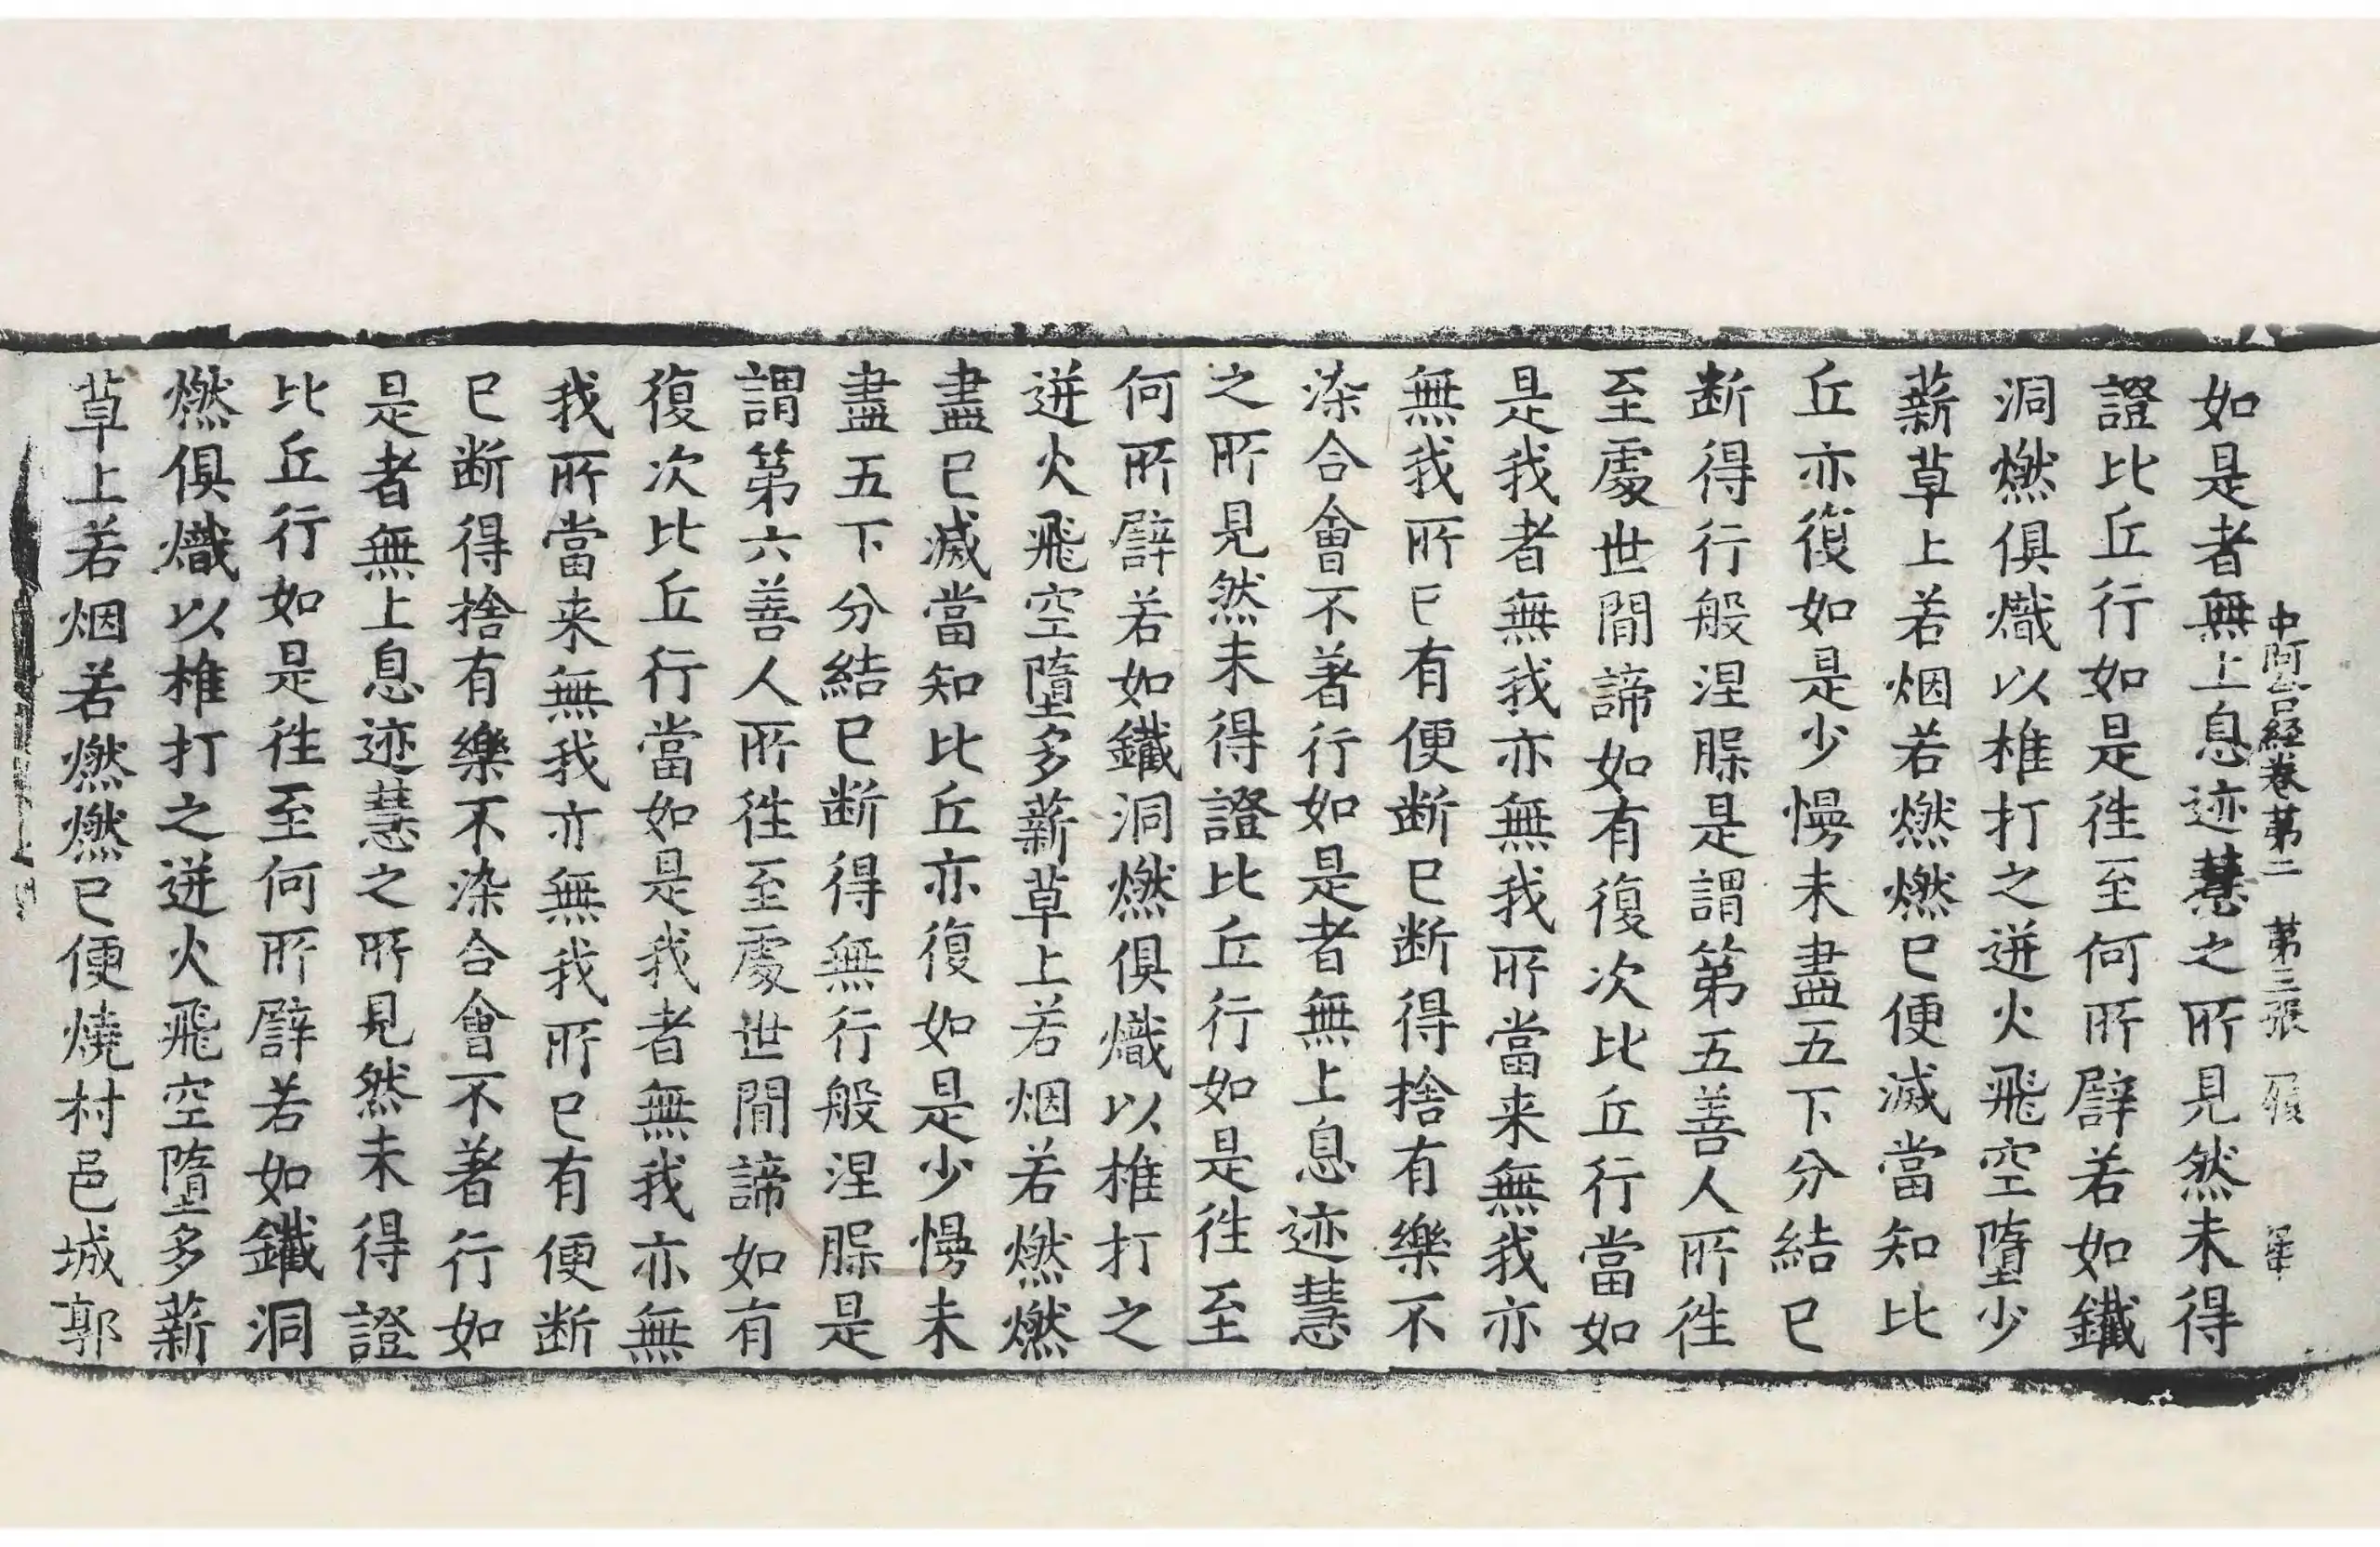 中阿含経巻苐二 苐三張
如是者無上息迹慧之所見然未得
證比丘行如是徃至何所譬若如鐵
洞燃俱熾以椎打之迸火飛空墮少
薪草上若烟若燃燃已便滅當知比
丘亦復如是少慢未盡五下分結已
断得行般涅槃是謂第五善人所徃
至處世間諦如有復次比丘行當如
是我者無我亦無我所當来無我亦
無我所已有便断已断得捨有樂不
染合會不著行如是者無上息迹慧
之所見然未得證比丘行如是徃至
何所譬若如鐵洞燃俱熾以椎打之
迸火飛空墮多薪草上若烟若燃燃
盡已滅當知比丘亦復如是少慢未
盡五下分結已断得無行般涅槃是
謂第六善人所徃至處世間諦如有
復次比丘行當如是我者無我亦無
我所當来無我亦無我所已有便断
已断得捨有樂不染合會不著行如
是者無上息迹慧之所見然未得證
比丘行如是徃至何所譬若如鐵洞
燃俱熾以椎打之迸火飛空墮多薪
草上若烟若燃燃已便燒村邑城郭